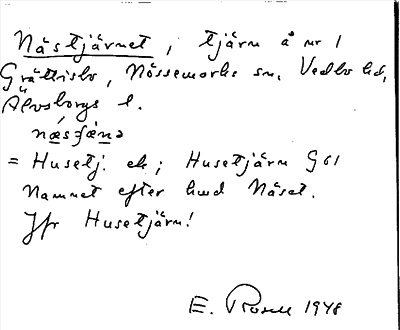 Nästjärnet, tjärn å nr 1
Grättisbo, Nössemarks sn, Vedbo hd,
Älvsborgs l.
næsʒæ̀nə
= Husetj. ek; Husetjärn G 61
Namnet efter hmd Näset.
Jfr Husetjärn!
E. Rosell 1948